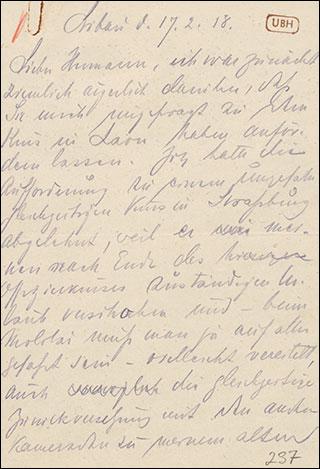 d. 17.2.18.
UBH
Lieber Hermann, ich war zunächst
ziemlich ärgerlich darüber, daß
Sie mich ungefragt zu Ihrem
Kurs in Laon haben anfor-
dern lassen. Ich hatte die
Aufforderung zu einem ungefähr
gleichzeitigen Kurs in Strassburg
abgelehnt, weil er mei-
nen nach Ende des hiesigen
Offizierkurses zuständigen Ur-
laub verschoben und – beim
muß man ja auf alles
gefaßt sein – vielleicht vereitelt,
auch die gleichzeitige
Zurückversetzung mit den andern
Kameraden zu meinem alten
237